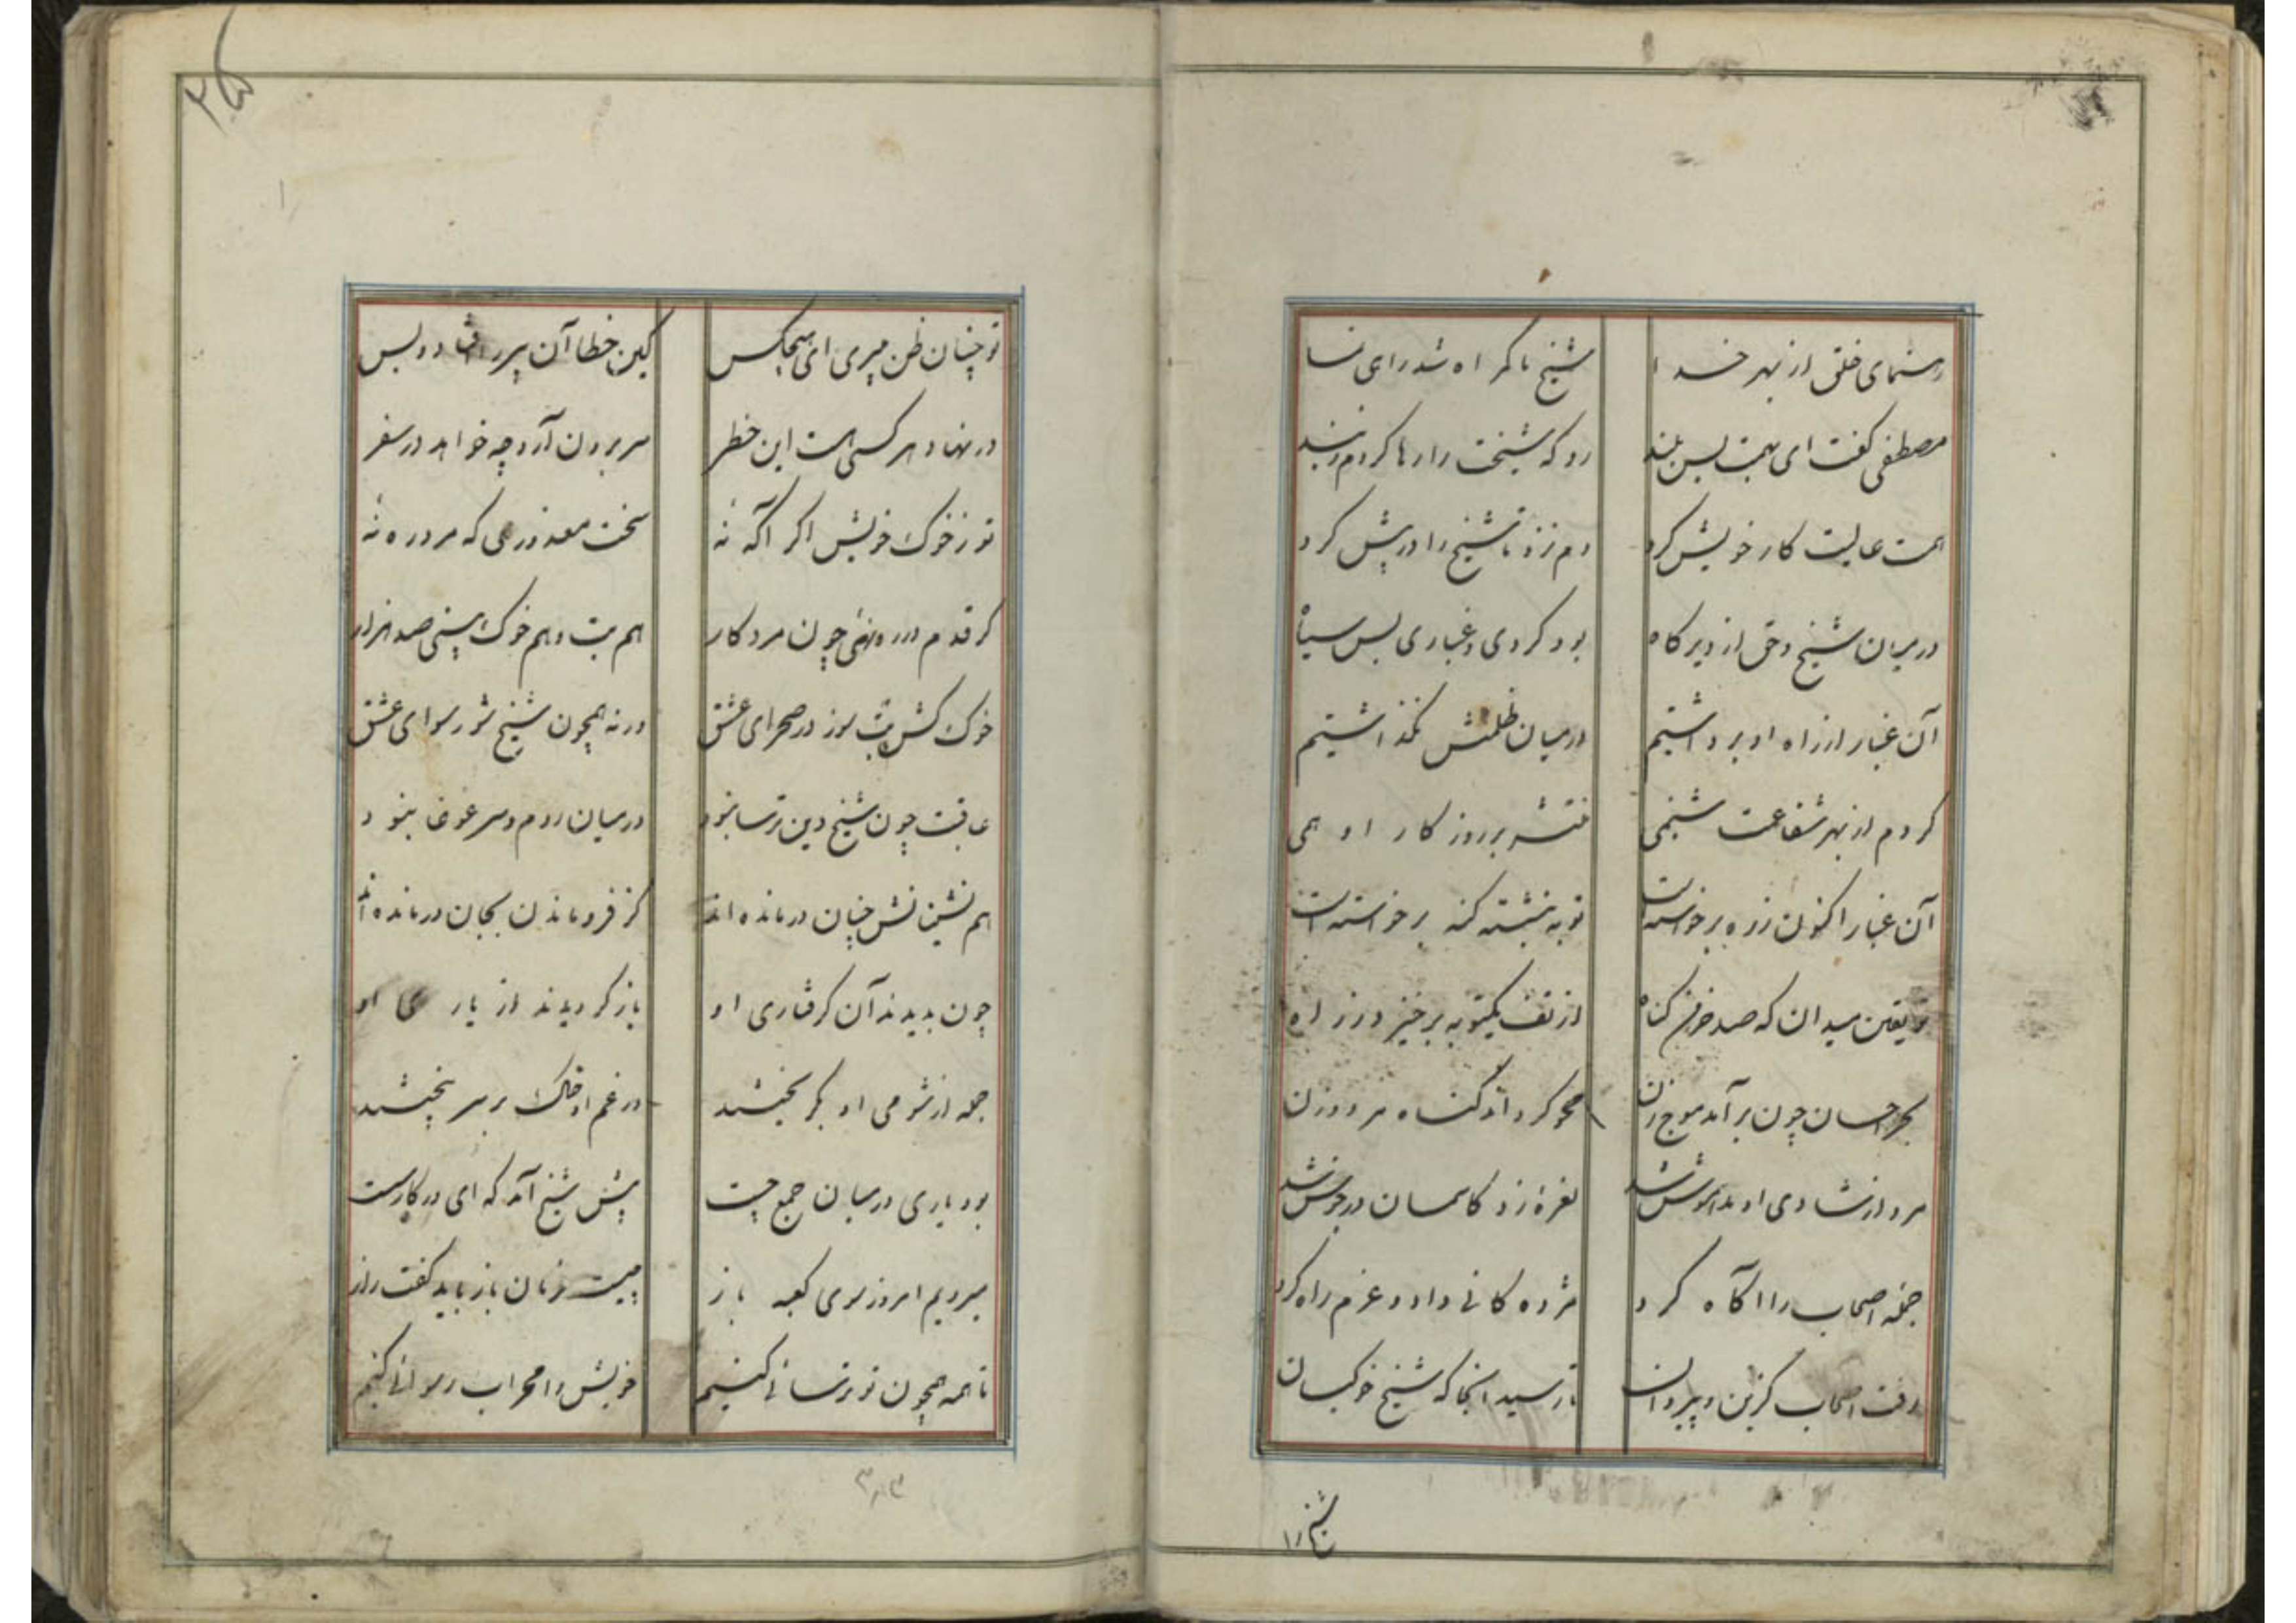 رهنمای خلق از بهر خدا شیخ ما گمراه شد راهی نما
مصطفی گفت ای بهمت بس بلند رو که شیخت را رها کردم ز بند
همت عالیت کار خویش کرد دم نزد تا شیخ را در پیش کرد
در میان شیخ و حق از دیرگاه بود گردی و غباری بس سیاه
آن غبار از راه او برداشتیم در میان ظلمتش نگذاشتیم
کردم از بهر شفاعت شبنمی منتشر بر روزگار او همی
آن غبار اکنون ز ره برخواستست توبه بنشسته گنه برخواستست
تو یقین میدان که صد خرمن گناه از تف یکتوبه برخیزد ز راه
بحر احسان چون بر آمد موج زن محو گرداند گناه مرد و زن
مرد از شادی او مدهوش شد نعرهٔ زد کاسمان در جوش شد
جمله اصحاب را آگاه کرد مژده کانی داد و عزم راه کرد
رفت اصحاب گزین و پیروان تا رسید آنجا که شیخ خوکبان
شیخ را
تو چنان ظن میبری ای هیچکس کین خطا آن پیر را افتاد و بس
در نهاد هر کسی هست این خطر سر برون آرد چه خواهد در سفر
تو ز خوک خویش اگر آگه نهٔ سخت معذوری که مرد ره نهٔ
گر قدم در ره نهی چون مرد کار هم بت و هم خوک بینی صد هزار
خوک کش بت سوز در صحرای عشق ورنه همچون شیخ شو رسوای عشق
عاقبت چون شیخ دین ترسا نمود در میان روم سر غوغا نمود
هم نشینانش چنان درمانده اند کز فرو ماندن بجان درمانده اند
چون بدیدند آن گرفتاری او باز گردیدند از یاری او
جمله از شومی او بگریختند در غم او خاک بر سر بیختند
بود یاری در میان جمع چست پیش شیخ آمد که ای در کار سست
میرویم امروز سوی کعبه باز چیست فرمان باز باید گفت راز
تا همه همچون تو ترسائی کنیم خویش را محراب رسوائی کنیم